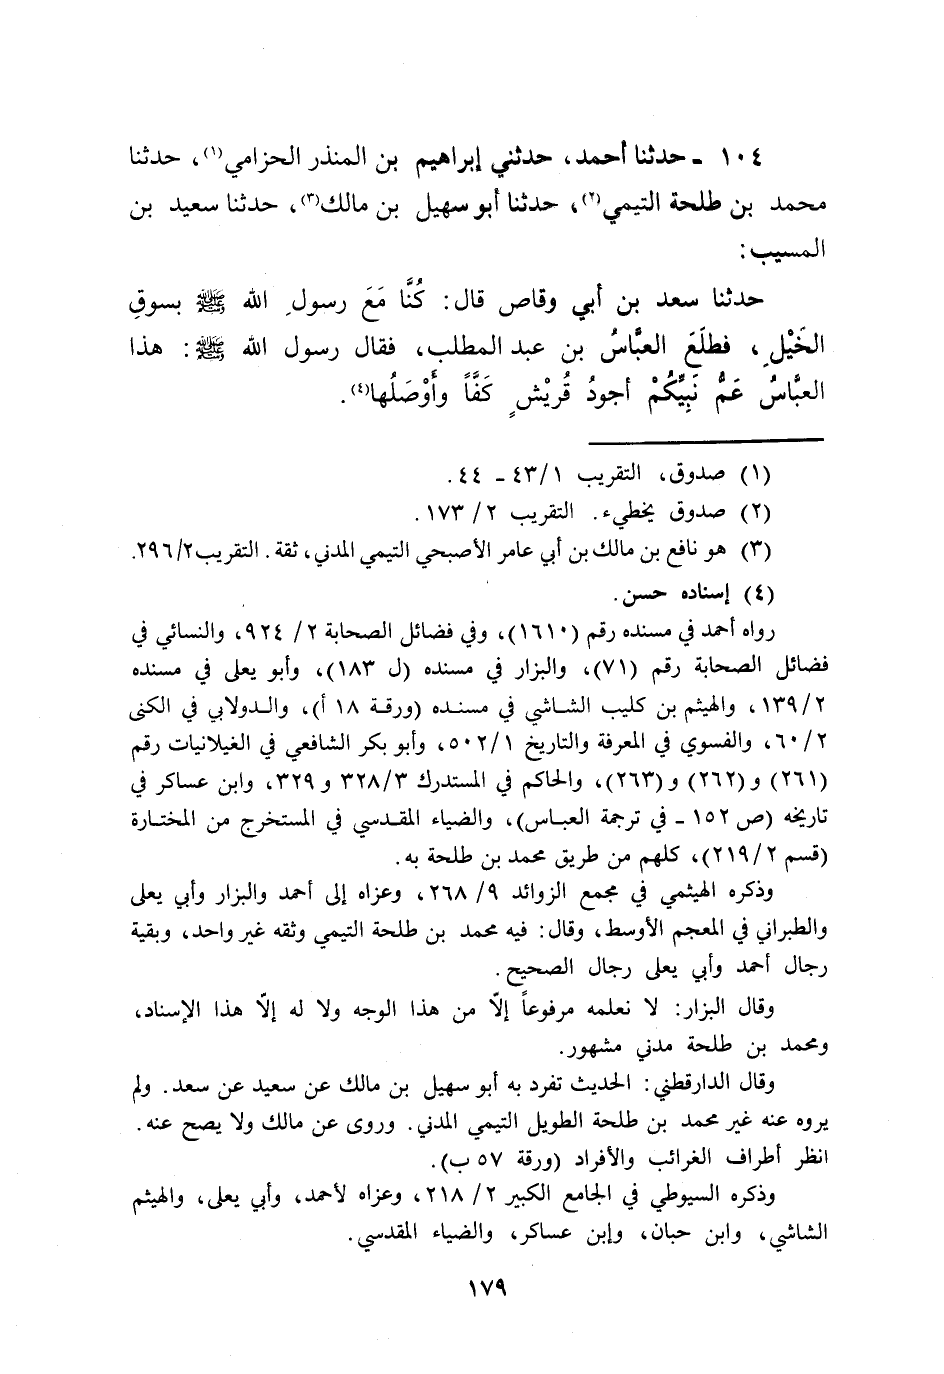 ١٠٤ ـ حدثنا أحمد، حدثني إبراهيم بن المنذر الحزامي(١)، حدثنا
محمد بن طلحة التيمي(٢)، حدثنا أبو سهيل بن مالك(٣)، حدثنا سعيد بن
المسيب:
حدثنا سعد بن أبي وقاص قال: كُنَّا مَعَ رسولِ الله ﷺ بسوقِ
الخَيْلِ، فطلَعَ العبَّاسُ بن عبد المطلب، فقال رسول الله ﷺ: هذا
العبَّاسُ عَمُّ نَبِيِّكُمْ أجودُ قُريْشٍ كَفَّاً وأَوْصَلُها(٤).
(١) صدوق، التقريب ٤٣/١ ـ ٤٤.
(٢) صدوق يخطيء. التقريب ٢/ ١٧٣.
(٣) هو نافع بن مالك بن أبي عامر الأصبحي التيمي المدني، ثقة. التقريب٢٩٦/٢.
(٤) إسناده حسن.
رواه أحمد في مسنده رقم (١٦١٠)، وفي فضائل الصحابة ٢/ ٩٢٤، والنسائي في
فضائل الصحابة رقم (٧١)، والبزار في مسنده (ل ١٨٣)، وأبو يعلى في مسنده
١٣٩/٢، والهيثم بن كليب الشاشي في مسنده (ورقة ١٨ أ)، والدولابي في الكنى
٦٠/٢، والفسوي في المعرفة والتاريخ ٥٠٢/١، وأبو بكر الشافعي في الغيلانيات رقم
(٢٦١) و(٢٦٢) و(٢٦٣)، والحاكم في المستدرك ٣٢٨/٣ و ٣٢٩، وابن عساكر في
تاريخه (ص ١٥٢ ـ في ترجمة العباس)، والضياء المقدسي في المستخرج من المختارة
(قسم ٢١٩/٢)، كلهم من طريق محمد بن طلحة به.
وذكره الهيثمي في مجمع الزوائد ٩/ ٢٦٨، وعزاه إلى أحمد والبزار وأبي يعلى
والطبراني في المعجم الأوسط، وقال: فيه محمد بن طلحة التيمي وثقه غير واحد، وبقية
رجال أحمد وأبي يعلى رجال الصحيح.
وقال البزار: لا نعلمه مرفوعاً إلّا من هذا الوجه ولا له إلّا هذا الإسناد،
ومحمد بن طلحة مدني مشهور.
وقال الدارقطني: الحديث تفرد به أبو سهيل بن مالك عن سعيد عن سعد. ولم
يروه عنه غير محمد بن طلحة الطويل التيمي المدني. وروى عن مالك ولا يصح عنه.
انظر أطراف الغرائب والأفراد (ورقة ٥٧ ب).
وذكره السيوطي في الجامع الكبير ٢/ ٢١٨، وعزاه لأحمد، وأبي يعلى، والهيثم
الشاشي، وابن حبان، وإبن عساكر، والضياء المقدسي.
١٧٩